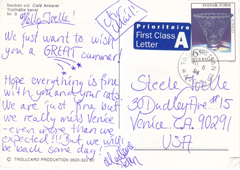 Neuken vid Café Ankaret
Trollhätte kanal
Hello Joelle!
We just want to wish
you a GREAT summer!
Hope everything is fine
with you and your cats.
We are just fine but
we really miss Venice
- even more than we
expected!!! But we will
be back some day!
TROLLCARD PRODUKTION
Prioritaire
First Class
Letter
A
SVERIGE
Steele Joelle
30 Dudley Ave #15
Venice. CA. 90291
USA